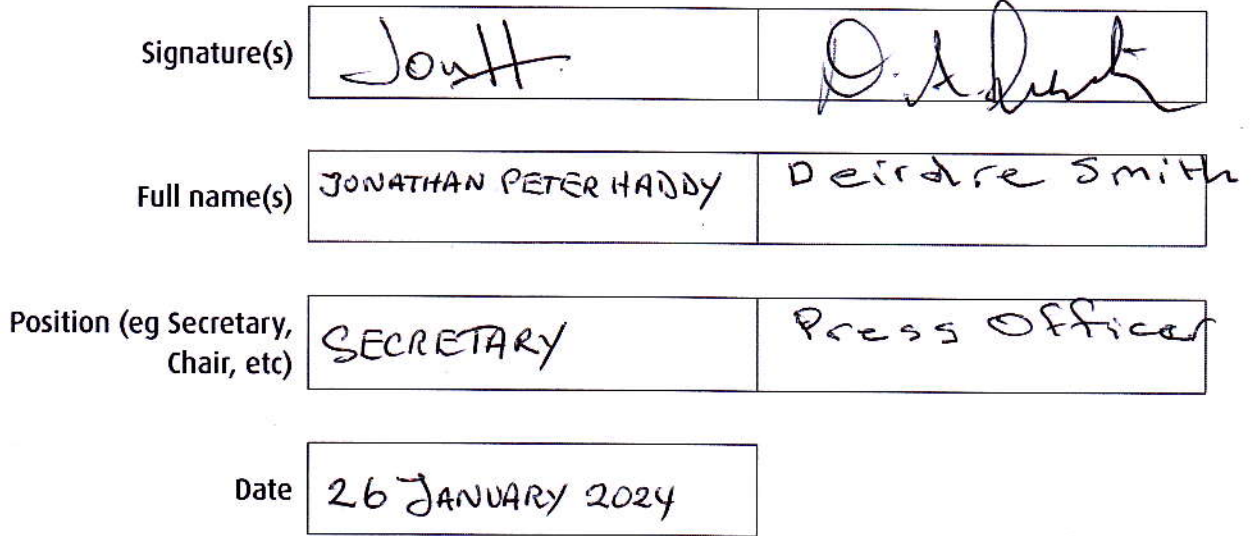 Signature(s)
Full name(s) JONATHAN PETER HADDY Deirdre Smith
Position (eg Secretary, SECRETARY Press Officer
Chair, etc)
Date 26 JANUARY 2024